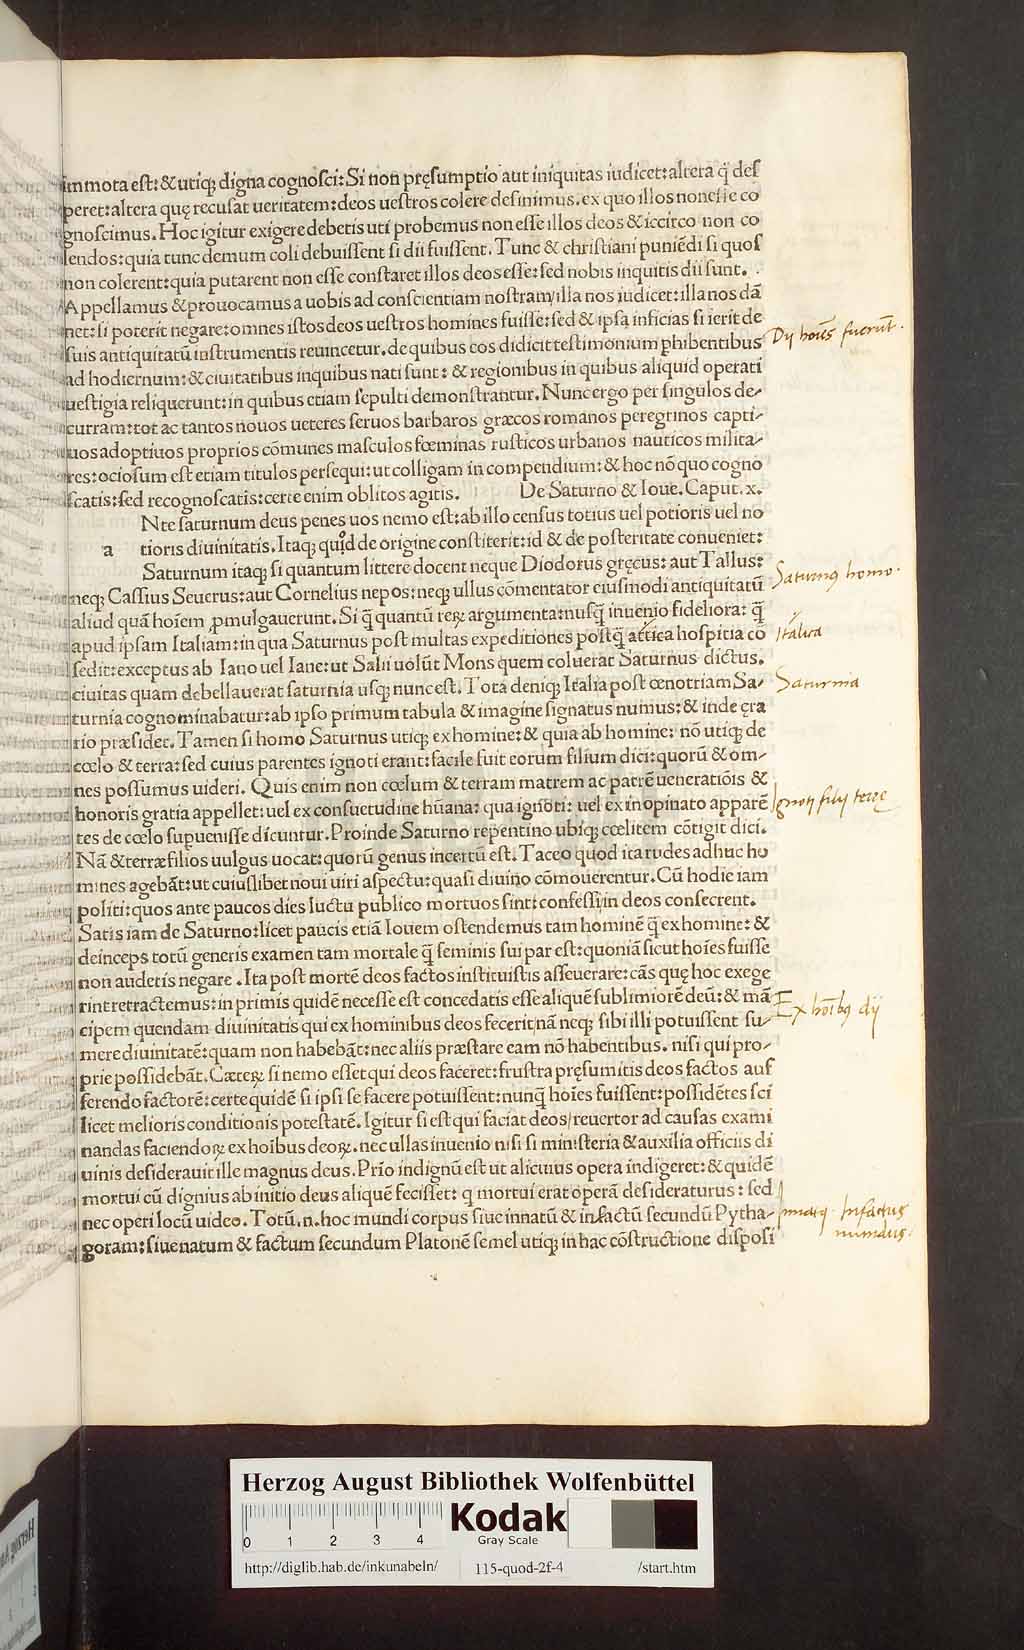 immota est: & utiq; digna cognosci: Si non pręsumptio aut iniquitas iudicet: altera q̃ des
peret: altera quę recusat ueritatem: deos uestros colere desinimus. ex quo illos non esse co
gnoscimus. Hoc igitur exigere debetis uti probemus non esse illos deos & iccirco non co
lendos: quia tunc demum coli debuissent si dii fuissent. Tunc & christiani puniẽdi si quos
non colerent: quia putarent non esse constaret illos deos esse: sed nobis inquitis dii sunt.
Appellamus & prouocamus a uobis ad conscientiam nostram, illa nos iudicet: illa nos dã
net: si poterit negare: omnes istos deos uestros homines fuisse: sed & ipsa inficias si ierit de
suis antiquitatũ instrumentis reuincetur. de quibus eos didicit testimonium phibentibus
Dij hoĩes fuerũt.
ad hodiernum: & ciuitatibus inquibus nati sunt: & regionibus in quibus aliquid operati
uestigia reliquerunt: in quibus etiam sepulti demonstrantur. Nunc ergo per singulos de-
curram: tot ac tantos nouos ueteres seruos barbaros græcos romanos peregrinos capti-
uos adoptiuos proprios cõmunes masculos fœminas rusticos urbanos nauticos milita-
res: ociosum est etiam titulos persequi: ut colligam in compendium: & hoc nõ quo cogno
scatis: sed recognoscatis: certe enim oblitos agitis. De Saturno & Ioue. Caput. x.
Nte saturnum deus penes uos nemo est: ab illo census totius uel potioris uel no
a tioris diuinitatis. Itaq; quid de origine constiterit: id & de posteritate conueniet:
Saturnum itaq; si quantum littere docent neque Diodorus gręcus: aut Tallus:
neq; Cassius Seuerus: aut Cornelius nepos: neq; ullus cõmentator eiusmodi antiquitatũ
Saturnus homo.
aliud quã hoĩem pmulgauerunt. Si q̃ quantũ rerꝝ argumenta: nusq̃ inuenio fideliora: q̃
apud ipsam Italiam: in qua Saturnus post multas expeditiones postq̃ attica hospitia cõ
Italica
sedit: exceptus ab Iano uel Iane: ut Salii uolũt Mons quem coluerat Saturnus dictus.
ciuitas quam debellauerat saturnia usq; nunc est. Tota deniq; Italia post œnotriam Sa-
Saturnia
turnia cognominabatur: ab ipso primum tabula & imagine signatus numus: & inde ęra
rio præsidet. Tamen si homo Saturnus utiq; ex homine: & quia ab homine: nõ utiq; de
cœlo & terra: sed cuius parentes ignoti erant: facile fuit eorum filium dici: quorũ & om-
nes possumus uideri. Quis enim non cœlum & terram matrem ac patrẽ ueneratiõis &
honoris gratia appellet: uel ex consuetudine hũana: qua ignoti: uel ex inopinato apparẽ
Ignoti filij terrę
tes de cœlo supuenisse dicuntur. Proinde Saturno repentino ubiq; cœlitem cõtigit dici.
Nã & terræ filios uulgus uocat: quorũ genus incertũ est. Taceo quod ita rudes adhuc ho
mines agebãt: ut cuiuslibet noui uiri aspectu: quasi diuino cõmouerentur. Cũ hodie iam
politi: quos ante paucos dies luctu publico mortuos sint: confessi, in deos consecrent.
Satis iam de Saturno: licet paucis etiã Iouem ostendemus tam hominẽ q̃ ex homine: &
deinceps totũ generis examen tam mortale q̃ seminis sui par est: quoniã sicut hoĩes fuisse
non audetis negare. Ita post mortẽ deos factos instituistis asseuerare: cãs quę hoc exege
rint retractemus: in primis quidẽ necesse est concedatis esse aliquẽ sublimiorẽ deũ: & mã
Ex hoĩbus dij
cipem quendam diuinitatis qui ex hominibus deos fecerit, nã neq; sibi illi potuissent su-
mere diuinitatẽ: quam non habebãt: nec aliis præstare eam nõ habentibus. nisi qui pro-
prie possidebãt. Cæterꝝ si nemo esset qui deos faceret: frustra pręsumitis deos factos auf
ferendo factorẽ: certe quidẽ si ipsi se facere potuissent: nunq̃ hoĩes fuissent: possidẽtes sci
licet melioris conditionis potestatẽ. Igitur si est qui faciat deos, reuertor ad causas exami
nandas faciendorꝝ ex hoĩbus deorꝝ. nec ullas inuenio nisi si ministeria & auxilia officiis di
uinis desiderauit ille magnus deus. Prĩo indignũ est ut alicuius opera indigeret: & quidẽ
mortui cũ dignius ab initio deus aliquẽ fecisset: q mortui erat operã desideraturus: sed
nec operi locũ uideo. Totũ .n. hoc mundi corpus siue innatũ & infactũ secundũ Pytha-
Infactus
mundus.
goram: siue natum & factum secundum Platonẽ semel utiq; in hac cõstructione disposi
Herzog August Bibliothek Wolfenbüttel
0 1 2 3 4
Kodak
Gray Scale
http://diglib.hab.de/inkunabeln/ 115-quod-2f-4 /start.htm